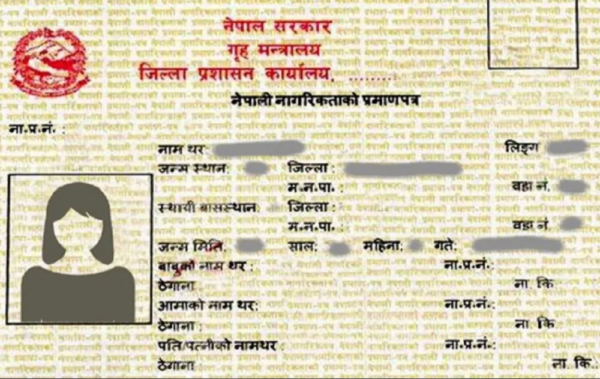 नेपाल सरकार
गृह मन्त्रालय
जिल्ला प्रशासन कार्यालय, .........
नेपाली नागरिकताको प्रमाणपत्र
ना.प्र.नं. :
नाम थर: लिङ्ग
जन्म स्थान: जिल्ला :
म.न.पा. : वडा नं.
स्थायी बासस्थान: जिल्ला :
म.न.पा. : वडा नं.
जन्म मिति: साल: महिना: गते:
बाबुको नाम थर : ना.प्र.नं.:
ठेगाना : ना. कि
आमाको नाम थर: ना.प्र.नं.:
ठेगाना : ना. कि
पति/पत्नीको नामथर: ना.प्र.नं.:
ठेगाना: ना. कि: